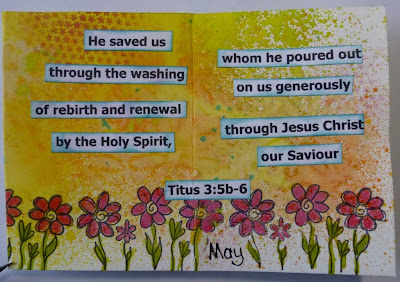 He saved us
through the washing
of rebirth and renewal
by the Holy Spirit,
whom he poured out
on us generously
through Jesus Christ
our Saviour
Titus 3:5b-6
May